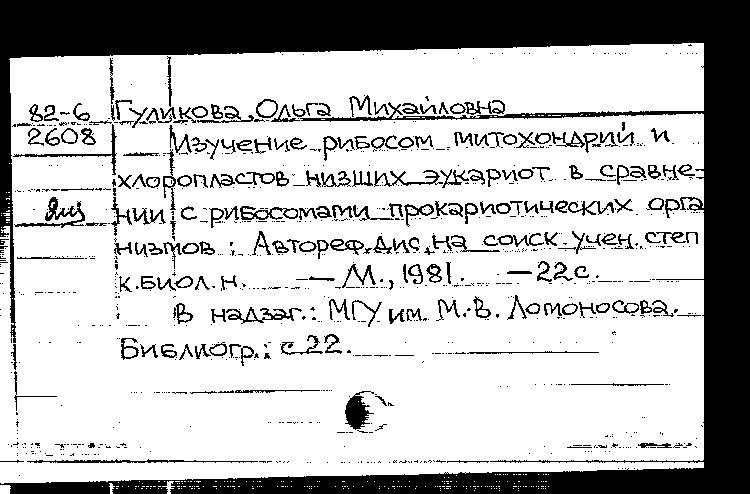 82-6 Гуликова, Ольга Михайловна
2608 Изучение рибосом митохондрий и
хлоропластов низших эукариот в сравне-
нии с рибосомами прокариотических орга
низмов : Автореф.дис.на соиск.учен.степ
к.биол.н. — М., 1981. — 22 с.
В надзаг.: МГУ им. М.В. Ломоносова.
Библиогр.: с.22.